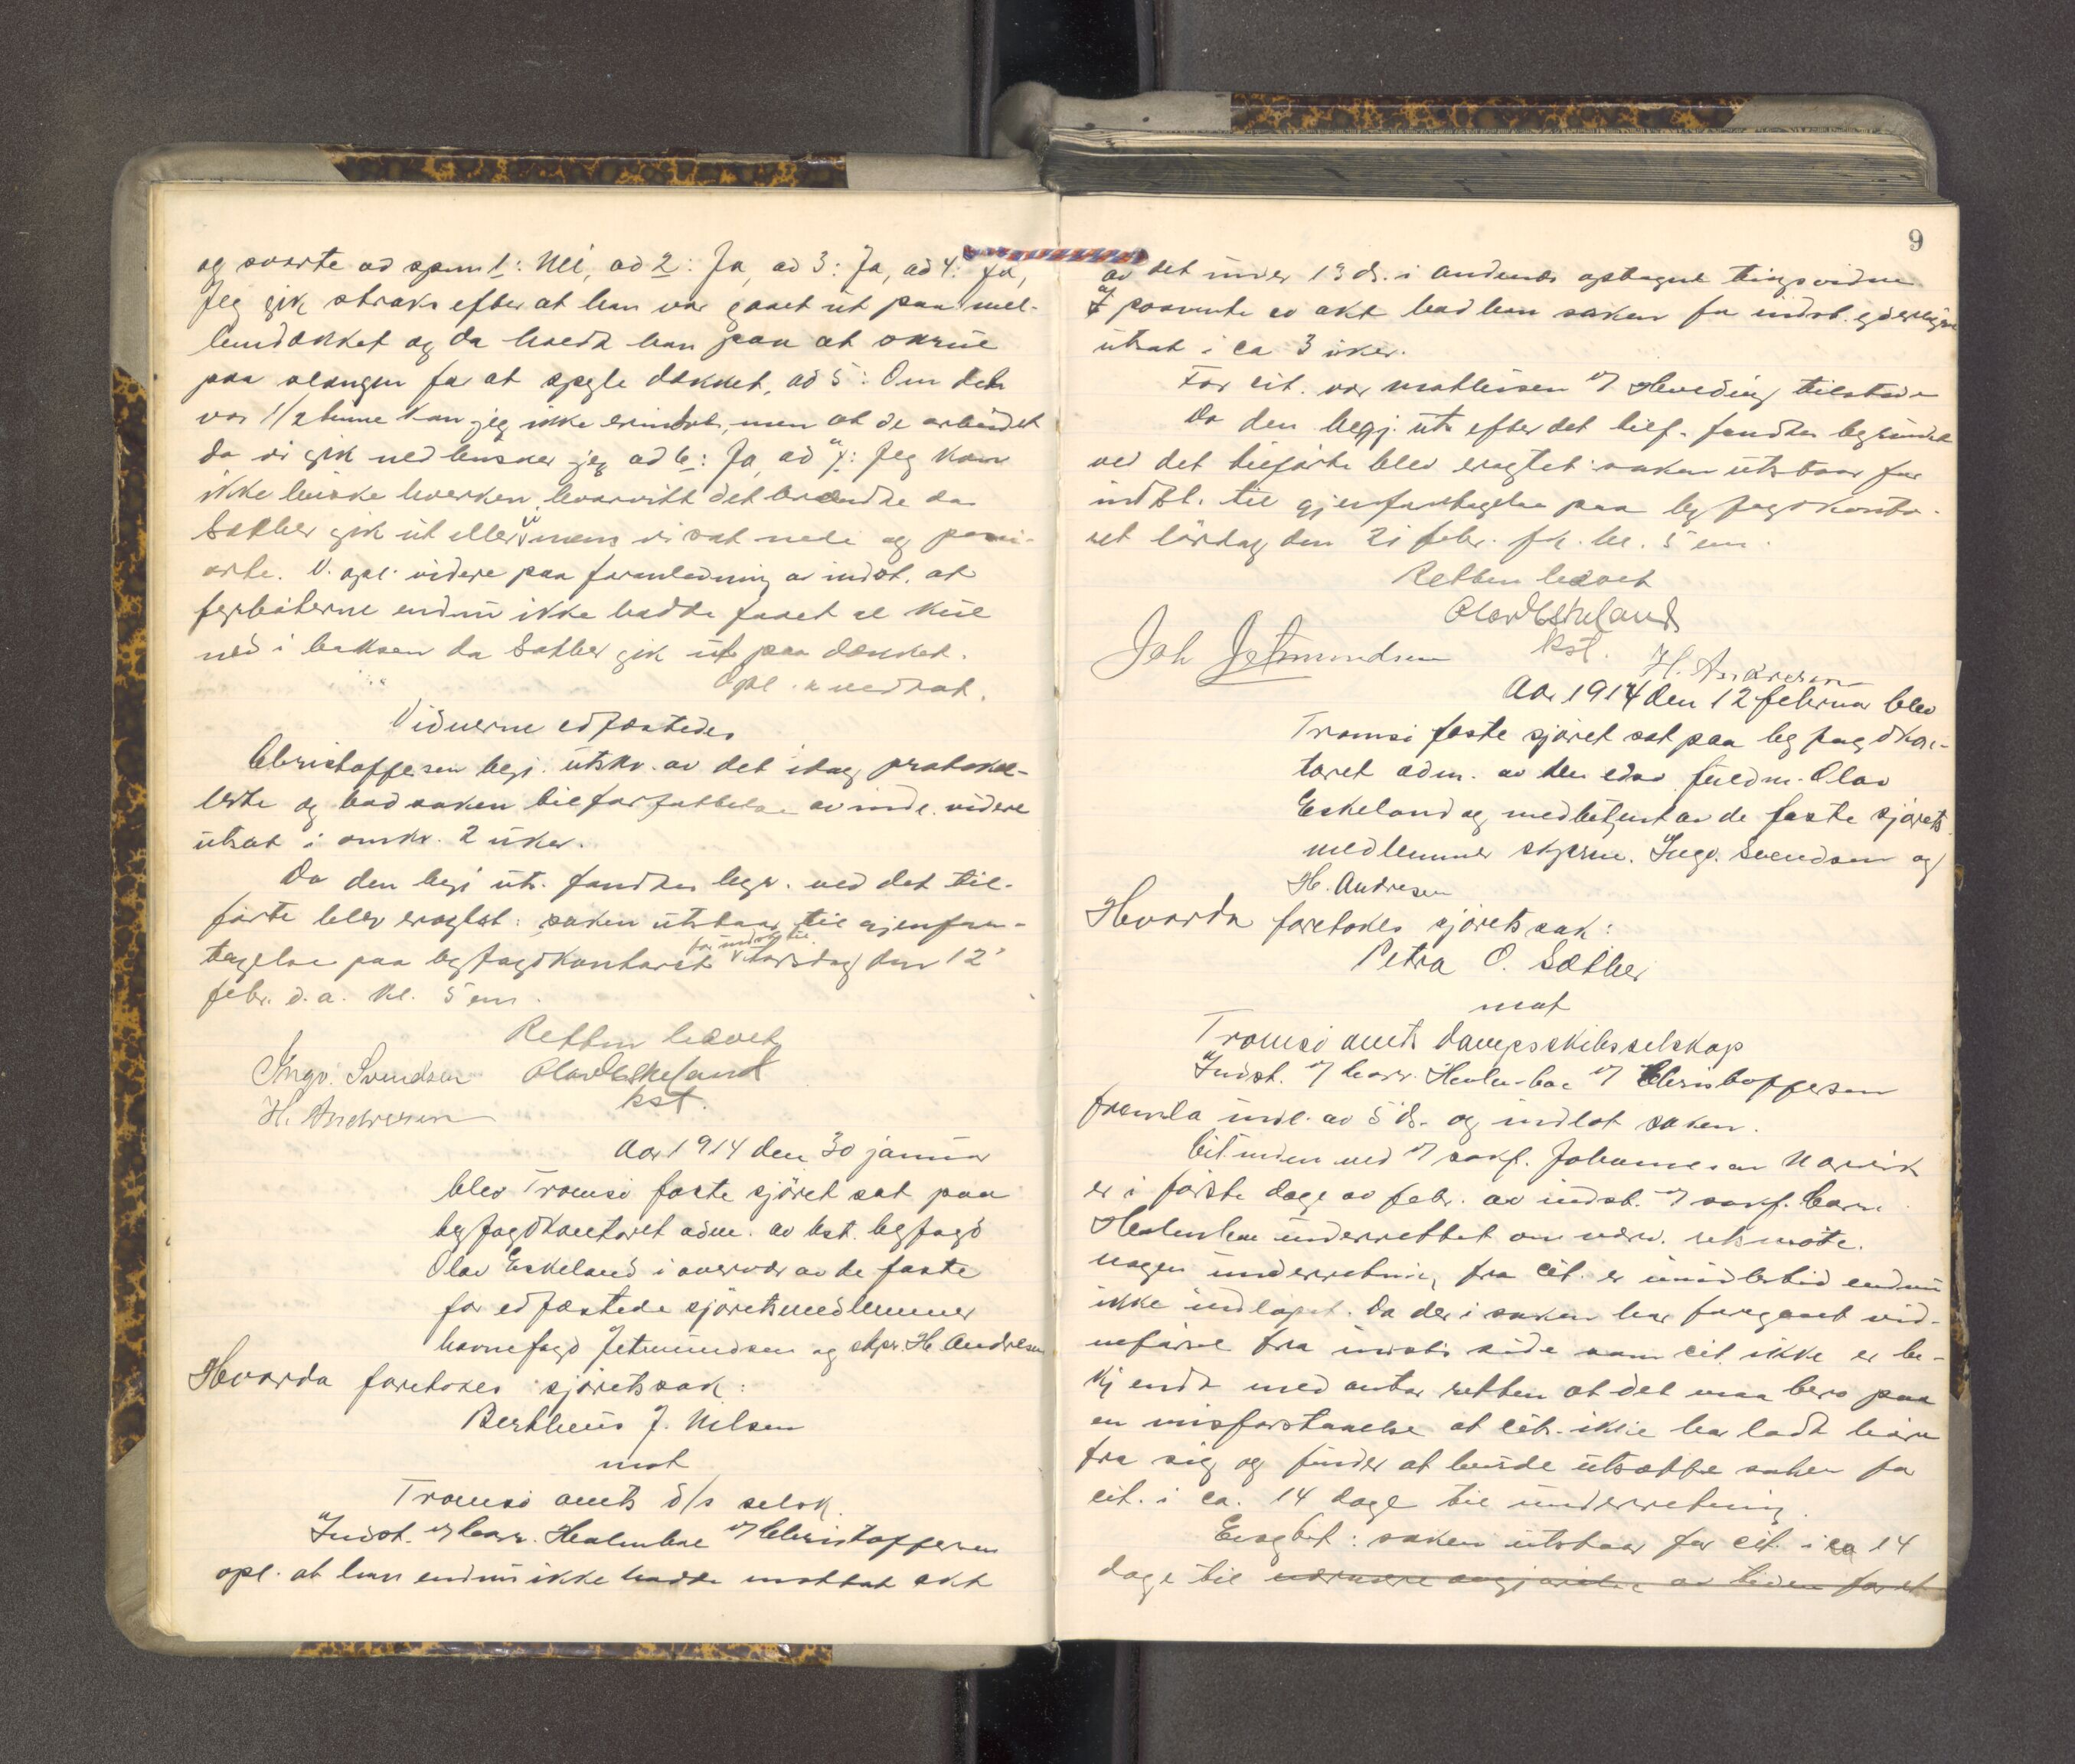 og svarte ad spm 1: Nei, ad 2: Ja, ad 3: Ja, ad 4: Ja,
Jeg gik straks efter at han var gaaet ut paa mel-
lemdækket og da holdt han paa at skrue
paa slangen for at spyle dækket, ad 5: Om det
var 1/2 time kan jeg ikke erindre, men at de arbeidet
da vi gik ned husker jeg ad 6: Ja, ad 7: Jeg kan
ikke huske hverken hvorvidt det brændte da
Sæther gik ut eller mens vi sat nede og
V. opl. videre paa foranledning av indst. at
fyrbøterne endnu ikke hadde faaet al kul
ned i boksen da Sæther gik ut paa dækket.
Opl. & vedtat.
Vidnerne edfæstedes
Christoffersen begj. utskr. av det idag protokol-
lerte og bad saken til forfattelse av indl. videre
utsat i omkr. 2 uker.
Da den begj uts. fandtes begr. ved det til-
førte blev eragtet: saken utstaar til gjenfore-
for indst. til
tagelse paa byfogdkontoret torsdag den 12'
febr. d.a. kl. 5 em.
Retten hævet
Ingv. Svendsen Olav Eskeland
H. Andresen kst.
Aar 1914 den 30 januar
blev Tromsø faste sjøret sat paa
byfogdkontoret adm. av kst. byfogd
Olav Eskeland i overvær av de faste
før edfæstede sjøretsmedlemmer
havnefogd Jetmundsen og skpr. H. Andresen
Hvorda foretokes sjøretssak:
Bertheus J. Nilsen
mot
Tromsø amts d/s selsk.
Indst. v/ harr. Holmboe v/ Christoffersen
opl. at han endnu ikke hadde mottat akt
9
av det under 13 ds. i Andenes optagne tingsvidne
paavente av akt bad han saken for indst. yderligere
utsat i ca 3 uker.
For cit. var Mathisen v/ Hveding tilstede
Da den begj. uts efter det tilf. fandtes begrundet
ved det tilførte blev eragtet: saken utstaar for
indst. til gjenforetagelse paa byfogdkonto-
ret lørdag den 21 febr. fk. kl. 5 em.
Retten hævet
Olav Eskeland
Joh Jetmundsen kst. H. Andresen
Aar 1914 den 12 februar blev
Tromsø faste sjøret sat paa byfogdkon-
toret adm. av den edsv. fuldm. Olav
Eskeland og medbetjent av de faste sjørets
medlemmer skprne. Ingv. Svendsen og
H. Andresen
Hvorda foretokes sjøretssak:
Petra O. Sæther
mot
Tromsø amts dampskibsselskap
Indst. v/ harr. Holmboe v/ Christoffersen
fremla indl. av 5 ds. og indlot saken.
Citinden ved v/ sakf. Johannesen Narvik
er i første dage av febr. av indst. v/ sakf. Conr.
Holmboe underrettet om nærv. retsmøte.
Nogen underretning fra cit. er imidlertid endnu
ikke indløpet. Da der i saken har foregaaet vid-
neførsel fra indsts side som cit. ikke er be-
kjendt med antar retten at det maa bero paa
en misforstaaelse at cit. ikke har ladt høre
fra sig og finder at burde utsætte saken for
cit. i ca. 14 dage til underretning.
Eragtet: saken utstaar for cit. i ca 14
dage til nærmere avgjørelse av tiden for et